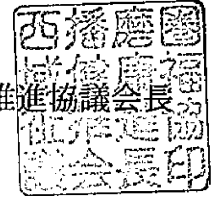 推進協議会長
西播磨圏
域健康福
祉推進協
議会長印